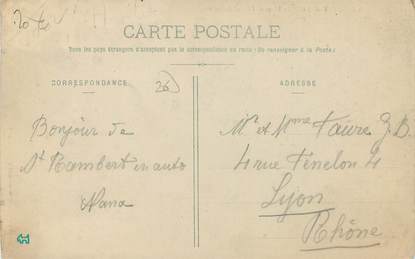 20 €
CARTE POSTALE
Tous les pays étrangers n'acceptent pas la correspondance au recto (Se renseigner à la Poste)
CORRESPONDANCE
26
ADRESSE
Bonjour de
St Rambert en auto
Nana
Mr et Mme Faure J. B.
4 rue Fénelon 4
Lyon
Rhône